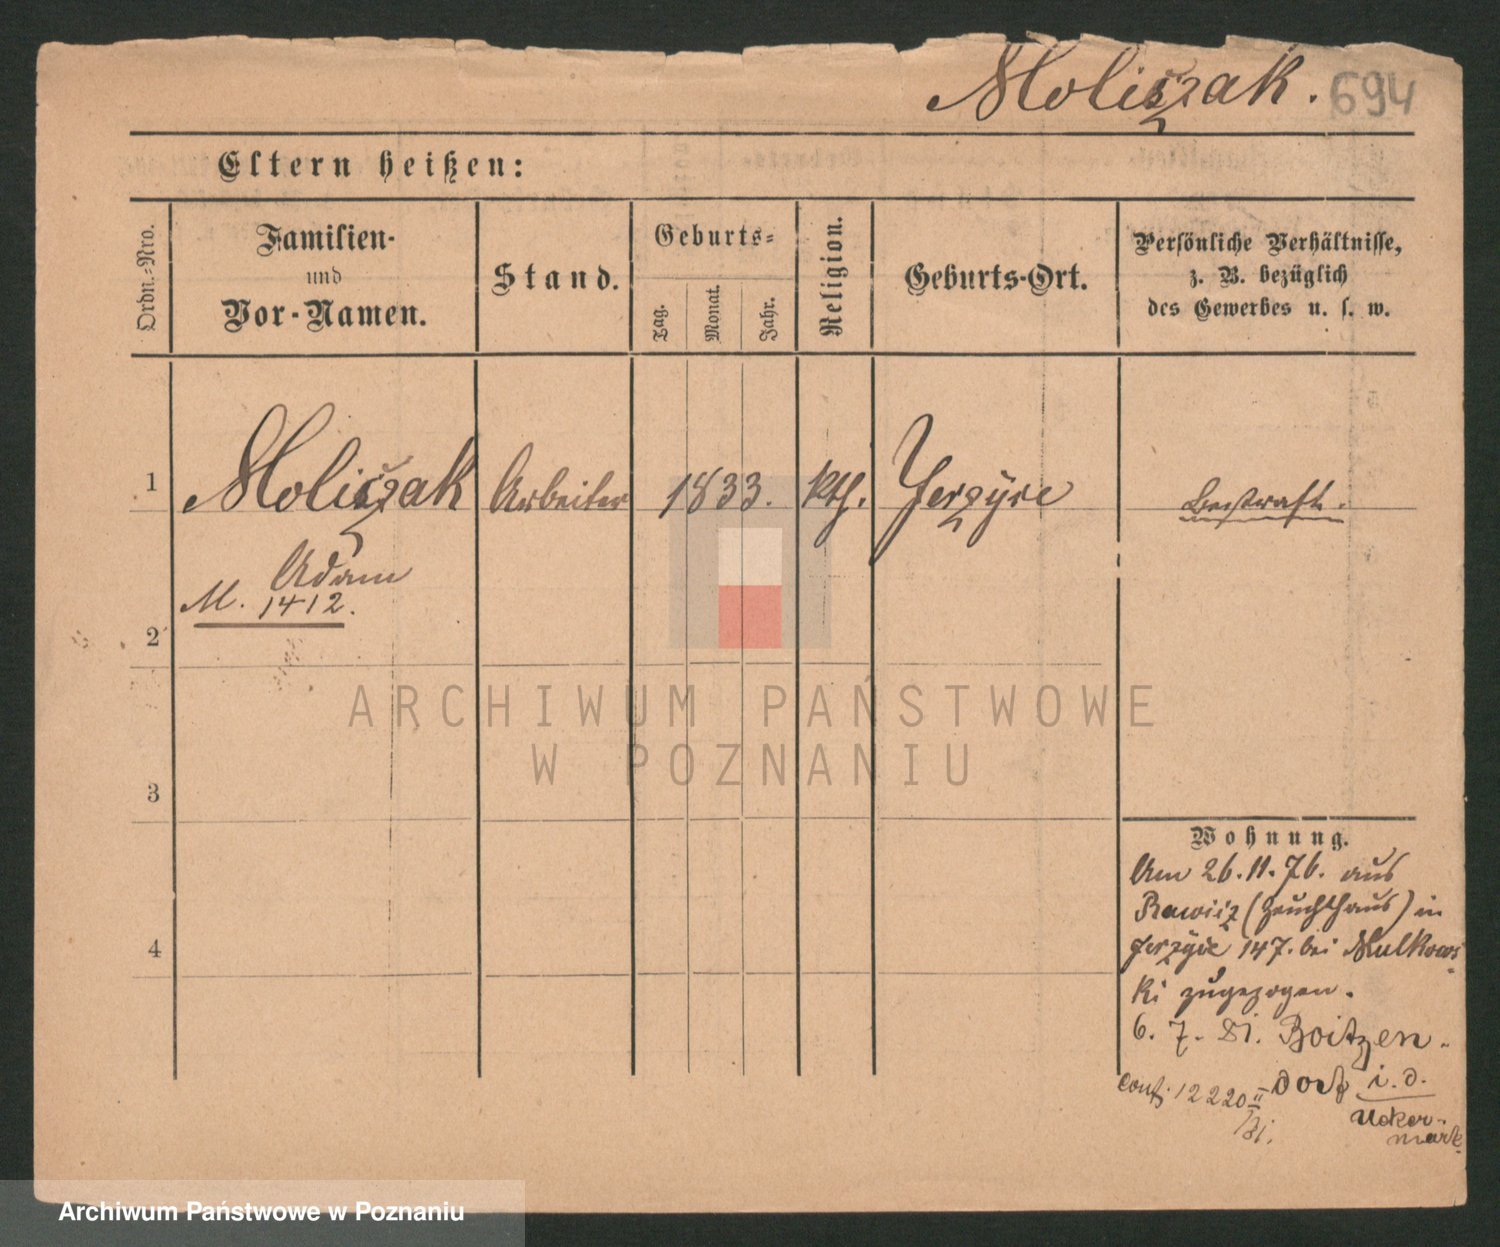 Moliszak. 694
Eltern heißen:
Ordn.-Nro.
Familien-
und
Vor-Namen.
Stand.
Geburts-
Tag.
Monat.
Jahr.
Religion.
Geburts-Ort.
Persönliche Verhältnisse,
z. B. bezüglich
des Gewerbes u. s. w.
1 Moliszak Arbeiter 1833. kth. Jerzyce Bestraft.
Adam
M. 1412.
2
3
4
Wohnung.
Am 26.11.76. aus
Rawicz (Zuchthaus) in
Jerzyce 147. bei Mulkows-
ki zugezogen.
6. 7. 81. Boitzen-
dorf i. d.
Ucker-
mark
conf. 12220 II
/81.
ARCHIWUM PAŃSTWOWE
W POZNANIU
Archiwum Państwowe w Poznaniu